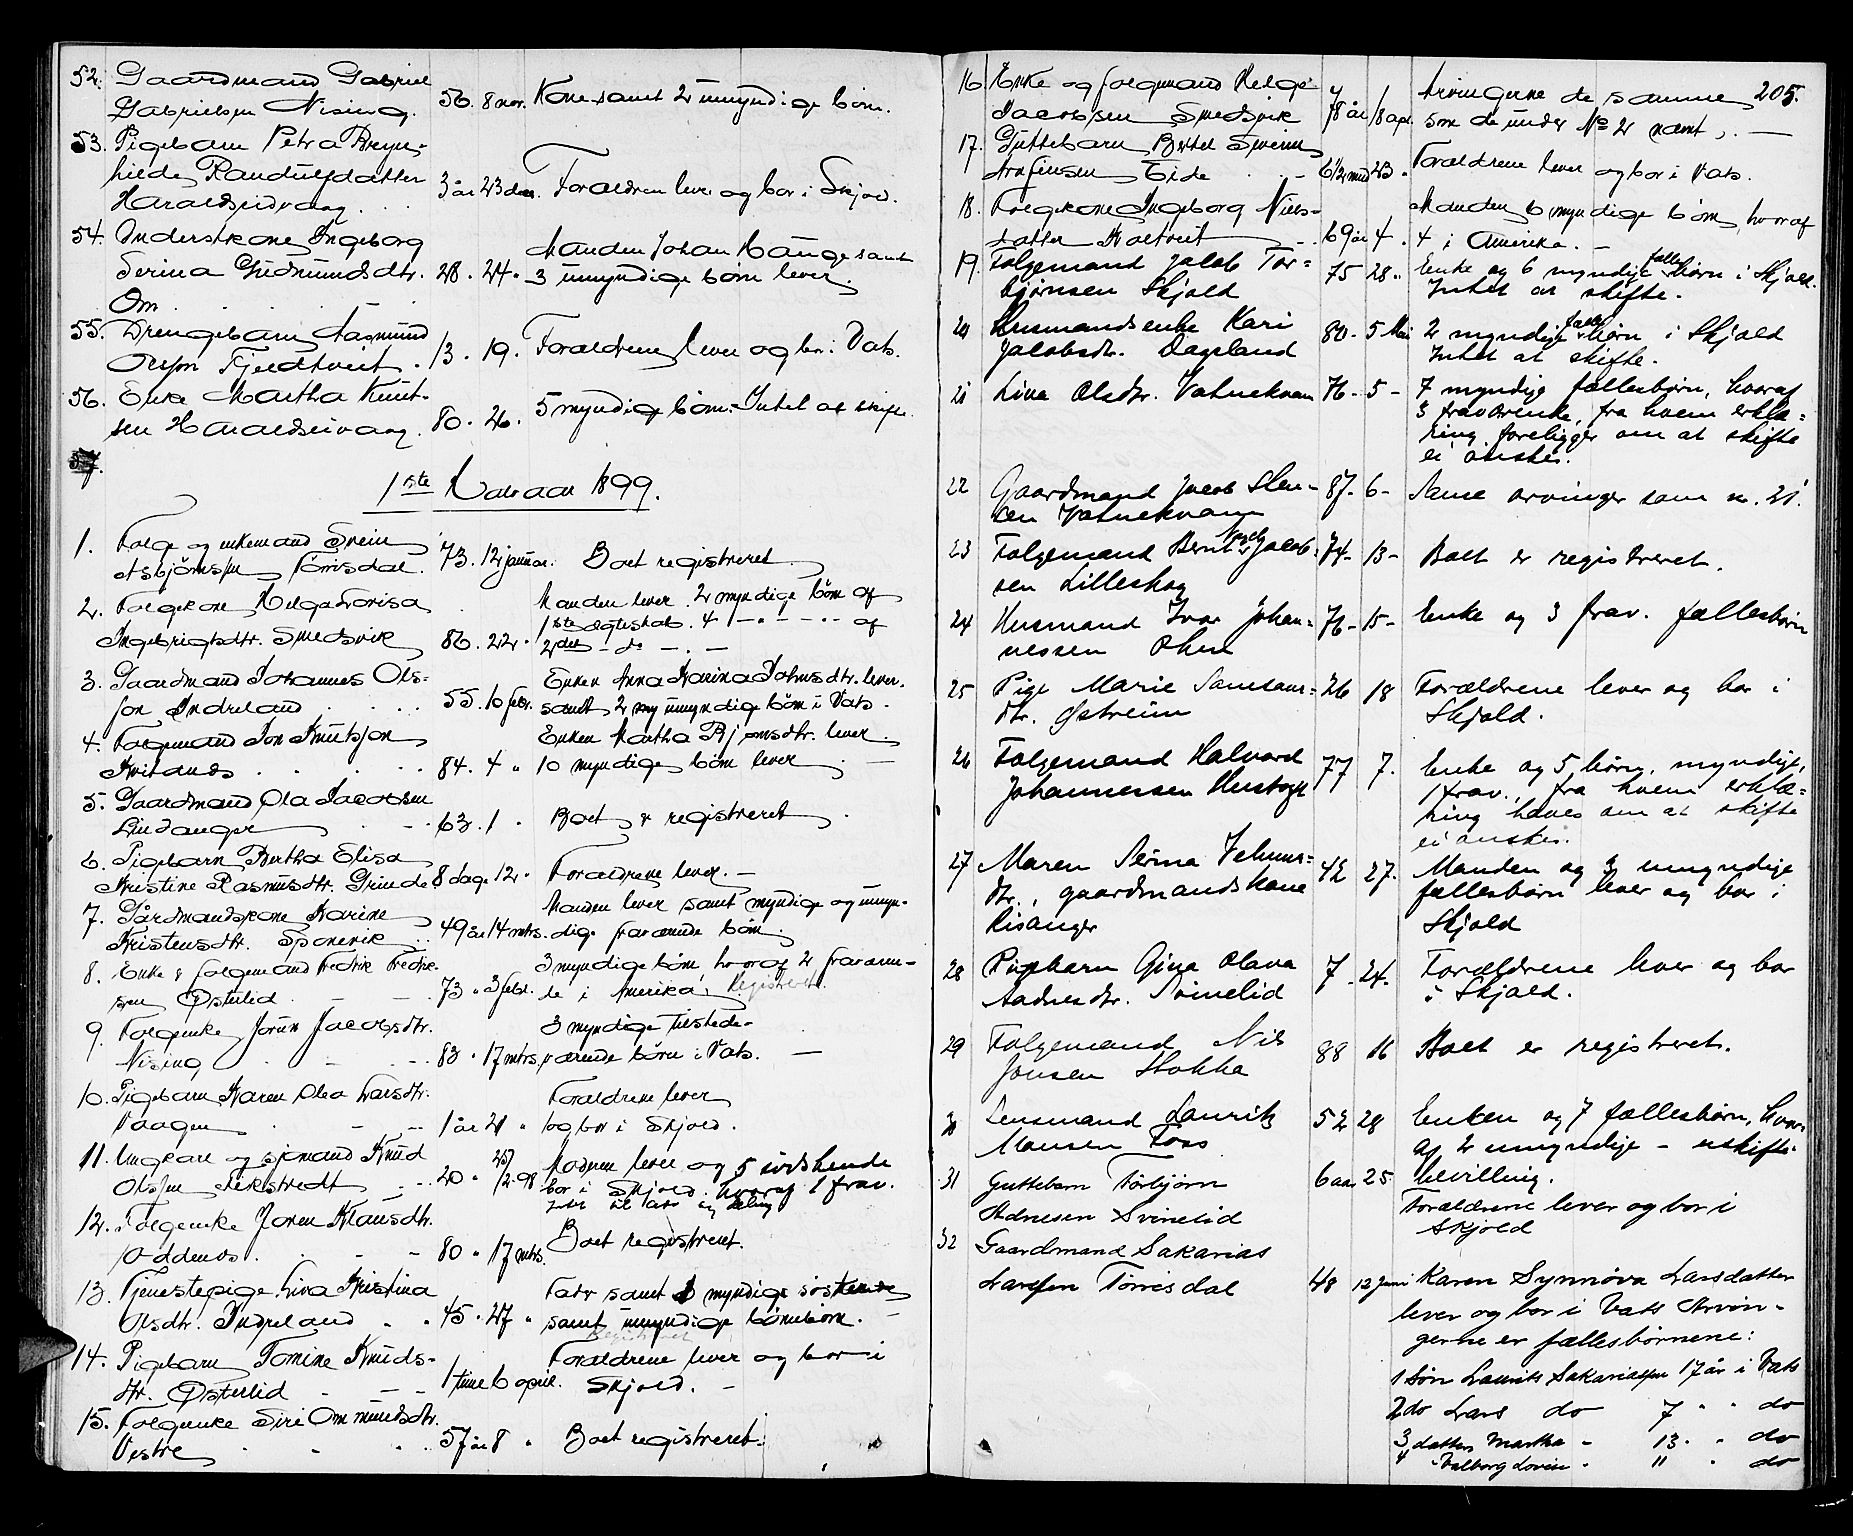 52. Gaardmand Gabriel
Gabrielsen Nising. 56. 8 nov. Kone samt 2 umyndige børn.
53. Pigebarn Petra Bryn-
hilde Randulfdatter 3 år 23 des. Forældrene lever og bor i Skjold.
Haraldseidvaag
54. Inderstkone Ingeborg Manden Johan Hauge samt
Serina Gudmundsdtr. 28. 24. 3 umyndige børn lever.
Om
55. Drengebarn Aasmund
Olsson Fjeldtveit. 13. 19. Forældrene lever og bor i Vats.
56. Enke Martha Knut-
sen Haraldseivaag 80. 26. 5 myndige børn. Intet at skifte.
57.
1ste Halvaar 1899.
1. Folge og enkemand Svein
Asbjørnsen Tørrisdal. 73. 12 januar. Boet registreret
2. Folgekone Helga Lovisa Manden lever. 2 myndige børn af
Ingebrigtsdtr. Smedsvik 86. 22. 1ste ægteskab. 4 — " — " — af
2det — do — " —
3. Gaardmand Johannes Ols- Enken Anna Karina Johnsdtr. lever.
son Indreland 55. 10 febr. samt 2 umyndige børn i Vats.
4. Folgemand Jon Knutson Enken Martha Bjørnsdtr. lever.
Kvitanes 84. 4 " 10 myndige børn lever
5. Gaardmand Ola Jacobsen
Lindanger 63. 1 " Boet er registreret
6. Pigebarn Bertha Elisa
Kristine Rasmusdtr. Grinde 8 dage 12. Forældrene lever. —
7. Gårdmandskone Karine Manden lever samt myndige og umyn-
Kristensdtr. Sponevik 49 år 14 mrts. dige fraværende børn.
8. Enke & folgemand Fredrik Fredrik- 3 myndige børn, hvoraf 2 fraværen-
sen Østerlid 73 " 3 febr. de i Amerika. Registreret.
9. Folgenke Jorun Jacobsdtr. 3 myndige tilstede-
Nising 83 " 17 mrts. værende børn i Vats. —
10. Pigebarn Karen Olea Larsdtr. Forældrene lever
Vaagen 1 år 21 " og bor i Skjold.
11. Ungkarl og sjømand Knud Moderen lever og 5 sødskende
Olsen Sekstvedt 20 " 25/12 98 bor i Skjold. hvoraf 1 frav.
12. Folgenke Joren Klausdtr.
Oddenes. 80 " 17 mrts. Boet registreret.
13. Tjenestepige Lina Kristina Fader samt myndige søskende
Olsdtr. Indreland 45. 27 " samt umyndige børnebørn.
Registreret
14. Pigebarn Tomine Knuds- Forældrene lever og bor i
dtr. Østerlid 1 time 6 april. Skjold. —
15. Folgenke Siri Ommundsdtr.
Vestre 57 år 8 " Boet registreret.
205.
16 Enke og folgemand Helge Arvingerne de samme
Jacobsen Smedsvik 78 år 18 apr. som de under No 2 nævnt. —
17. Guttebarn Bertel Sveinung
Arnfinsen Eide 6 1/2 mnd 23 " Forældrene lever og bor i Vats.
18. Folgekone Ingeborg Niels- Manden 6 myndige børn, hvoraf
datterHoltveit 69 år 4. 4 i Amerika. —
19. Folgemand Jacob Tor- 75 28. Enke og 6 myndige fælles børn i Skjold.
bjørnsen Skjold Intet at skifte.
20 Husmandsenke Kari 80. 5 Mai 2 myndige fælles børn i Skjold
Jacobsdtr. Dagsland Intet at skifte.
21 Lina Olsdtr. Vatnekvam 76 - 5 - 7 myndige fællesbørn, hvoraf
3 fraværende, fra hvem erklæ-
ring foreligger om at skifte
ei ønskes.
22 Gaardmand Jacob Sten- 87. 6 - Samme arvinger som nr. 21.
sen Vatnekvam
23 Folgemand Bernt Jacob- 74 - 13 - Boet er registreret.
sen Lilleskog
24 Husmand Ivar Johan- 76 - 15 - Enke og 3 frav. fællesbørn
nessen Ohm
25 Pige Marie Samsons- 26 18 Forældrene lever og bor i
dtr. Østreim Skjold.
26 Folgemand Halvard 77 7. Enke og 5 børn, myndige,
Johannessen Hustoft 1 frav., fra hvem erklæ-
ring haves om at skifte
ei ønskes.
27 Maren Serina Velums- 42 27. Manden og 3 umyndige
dtr., gaardmandskone fællesbørn lever og bor i
Risanger Skjold
28 Pigebarn Gina Olava 7 - 24. Forældrene lever og bor
Aadnesdtr. Svinelid i Skjold.
29 Folgemand Nils 88 16 Boet er registreret.
Jonsen Stokka
30 Lensmand Lauritz 52 28 Enken og 7 fællesbørn, hvor-
Monsen Foss af 2 umyndige - uskifte-
31 Guttebarn Torbjørn 6 aar 25 bevilling.
Adnesen Svinelid Forældrene lever og bor i
Skjold
32 Gaardmand Sakarias
Larssen Tørrisdal 48 12 Juni Karen Synnøva Larsdatter
lever og bor i Vats Arvin-
gerne er fællesbørnene:
1 Søn Laurits Sakariassen 17 år i Vats
2 do Lars do 7 " " do
3 datter Martha " 13 " " do
4 " Valborg Lovise " 11 " do